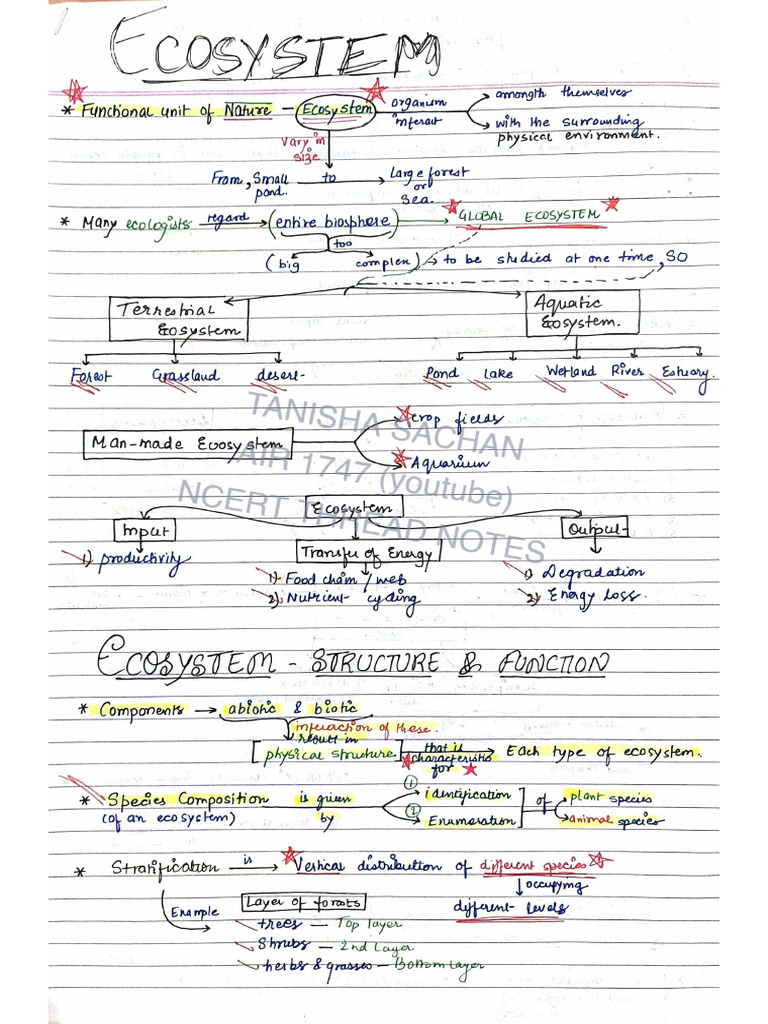 ECOSYSTEM
* Functional unit of Nature - Ecosystem organism interact amongth themselves
with the surrounding physical environment.
Vary in size
From, Small pond. to Large forest or Sea.
* Many ecologists regard (entire biosphere) GLOBAL ECOSYSTEM
too
(big complen) → to be studied at one time, SO
Terrestrial Eosystem
Aquatic Ecosystem.
Forest Grassland desert
Pond Lake Wetland River Estuary.
Man-made Ecosystem
crop fields
Aquarium
TANISHA SACHAN
AIR 1747 (youtube)
NCERT THREAD NOTES
Ecosystem
Input
Transfer of Energy
Output
1) productivity
1) Food chain / web
2) Nutrient cycling
1) Degradation
2) Energy Loss.
ECOSYSTEM - STRUCTURE & FUNCTION
* Components → abiotic & biotic
interaction of these.
result in
[physical structure] that is characteristic for Each type of ecosystem.
* Species Composition (of an ecosystem) is given by
① identification
② Enumeration
of plant species
animal species
* Stratification is → Vertical distribution of different species
occupying
different levels
Example
Layer of forests
trees — Top layer
Shrubs — 2nd Layer.
herbs & grasses — Bottom Layer